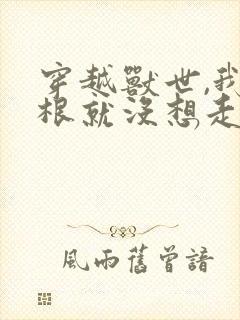 穿越獸世,我
根就沒想走
風雨舊曾諳